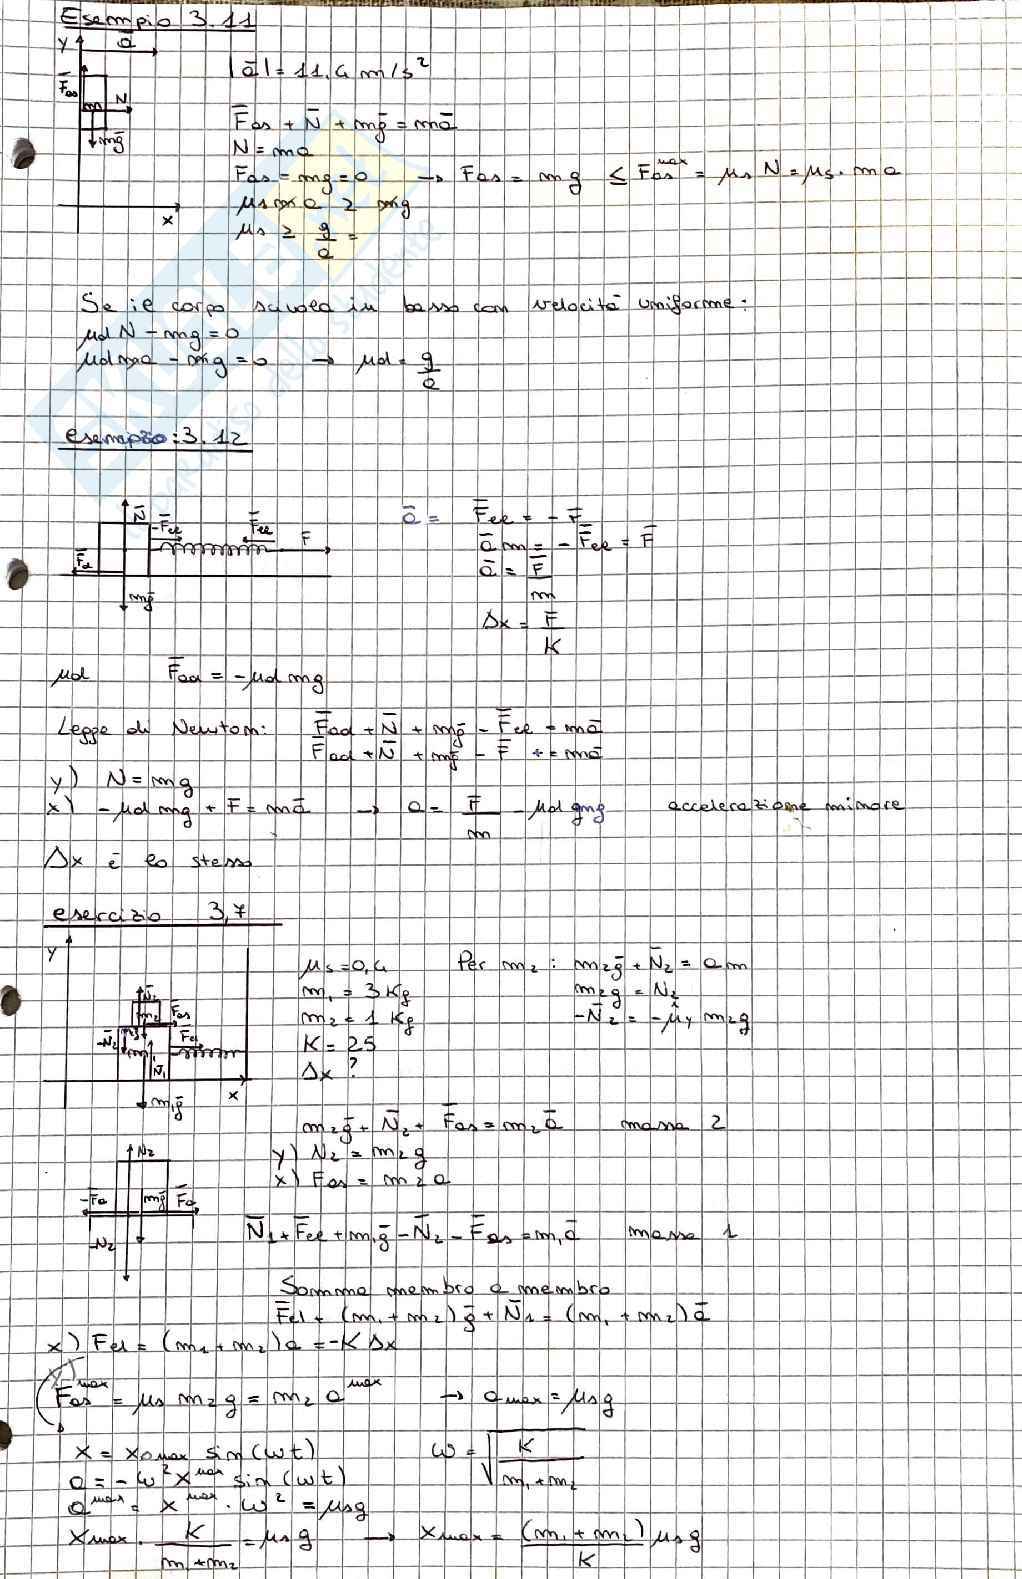 Esempio 3.11
y ā
|ā| = 11,4 m/s²
F̄as
m N
mḡ
x
F̄as + N̄ + mḡ = mā
N = ma
F̄as = mg = 0 → Fas = mg ≤ F̄as^max = μs N = μs · ma
μs ma ≥ mg
μs ≥ g/a =
Se il corpo scivola in basso con velocità uniforme:
μd N - mg = 0
μd ma - mg = 0 → μd = g/a
esempio: 3.12
N̄ -F̄el F̄el F
F̄a
mḡ
ā = F̄el = - F̄
ā m = - F̄el = F̄
ā = F̄/m
Δx = F/K
μd F̄ad = -μd mg
Legge di Newton: F̄ad + N̄ + mḡ - F̄el = mā
F̄ad + N̄ + mḡ - F̄ = mā
y) N = mg
x) - μd mg + F = mā → a = F/m - μd g accelerazione minore
Δx è lo stesso
esercizio 3,7
y
N̄2
m2 F̄as
-N̄2 m2g F̄el
m1 N̄1
x
m1ḡ
μs = 0,4
m1 = 3 Kg
m2 = 1 Kg
K = 25
Δx ?
Per m2 : m2ḡ + N̄2 = am
m2g = N2
-N̄2 = -μ̂y m2g
m2ḡ + N̄2 + F̄as = m2ā massa 2
y) N2 = m2g
x) Fas = m2a
N2
-F̄a mḡ F̄a
-N2
N̄1 + F̄el + m1ḡ - N̄2 - F̄as = m1ā massa 1
Somma membro a membro
F̄el + (m1 + m2)ḡ + N̄1 = (m1 + m2)ā
x) Fel = (m1 + m2)a = -K Δx
F̄as^max = μs m2g = m2 a^max → amax = μsg
x = xomax sin(ωt) ω = √(K/(m1+m2))
a = - ω² x^max sin(ωt)
a^max = x^max · ω² = μsg
xmax · K/(m1+m2) = μsg → xmax = (m1+m2)/K μsg